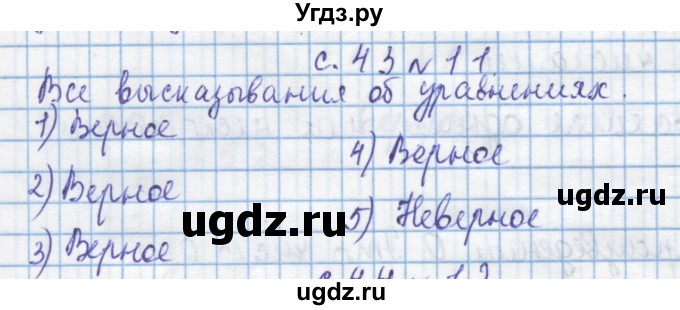 Угдз.ру
с. 43 № 11
Все высказывания об уравнениях.
1) Верное
2) Верное
3) Верное
4) Верное
5) Неверное
ugdz.ru
ugdz.ru
с. 44 № 12
ugdz.ru